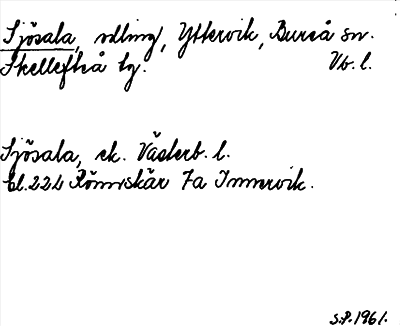 Sjösala, odling, Yttervik, Bureå sn.
Skellefteå tg. Vb. l.
Sjösala, ek. Västerb. l.
bl. 222 Rönnskär 7a Innervik.
S.P. 1961.